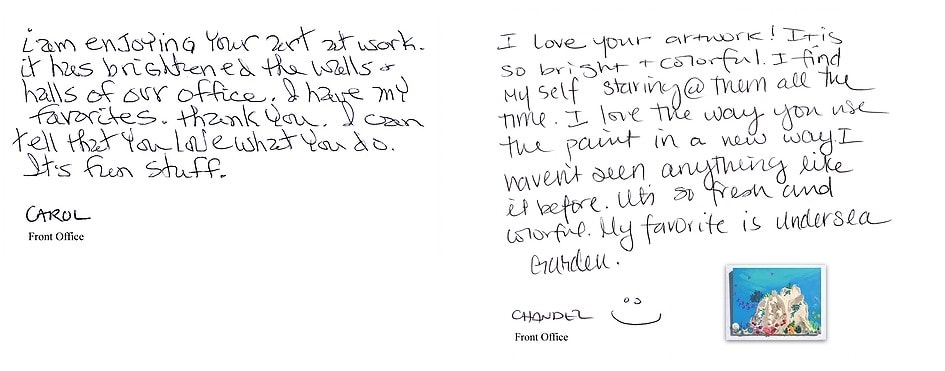 i am enjoying your art at work.
it has brightened the walls +
halls of our office. I have my
favorites. thank you. I can
tell that you love what you do.
It's fun stuff.
CAROL
Front Office
I love your artwork! It is
so bright + colorful. I find
myself staring @ them all the
time. I love the way you use
the paint in a new way. I
haven't seen anything like
it before. It's so fresh and
colorful. My favorite is undersea
Garden.
CHANDEL
Front Office